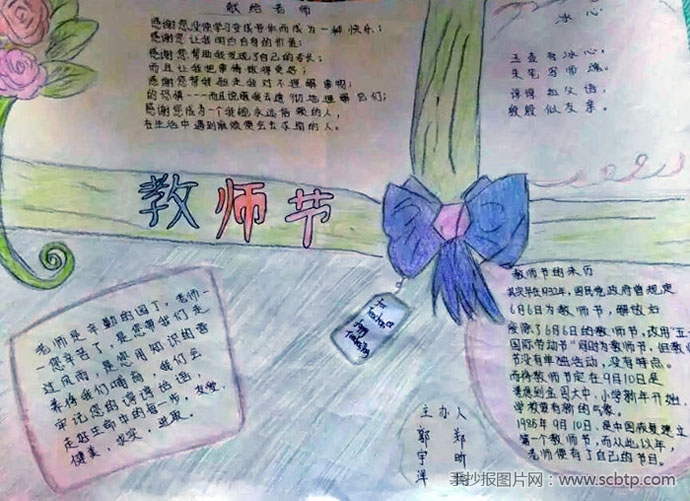 献给老师
感谢您没使学习变成劳作而成为一种快乐；
感谢您让我明白自身的价值；
感谢您帮助我发现了自己的专长，
而且让我把事情做得更好。
感谢您帮我
感谢您成为一个我能永远信赖的人，
在生活中遇到麻烦便会去求助的人。
冰心
玉壶存冰心，
朱笔写师魂。
谆谆如父语，
殷殷似友亲。
教师节
For
Teacher's
Happy
老师是辛勤的园丁，老师——
您辛苦了，是您带我们走
过风雨，是您用知识的营
养将我们哺育，我们会
牢记您的谆谆话语，
走好生命中的每一步，友爱，
健美，求实，进取。
教师节的来历
其实早在1932年，国民党政府曾规定
6月6日为教师节，解放后
废除了6月6日的教师节，改用"五一
国际劳动节"同时为教师节，但教师
节没有单独活动，没有特点。
而将教师节定在9月10日是
考虑到全国大中、小学新年开始，
学校要有新的气象。
1985年9月10日，是中国恢复建立
第一个教师节，而从此以年，
老师便有了自己的节日。
主办人
郭宇洋
郑昕
手抄报图片网：www.scbtp.com